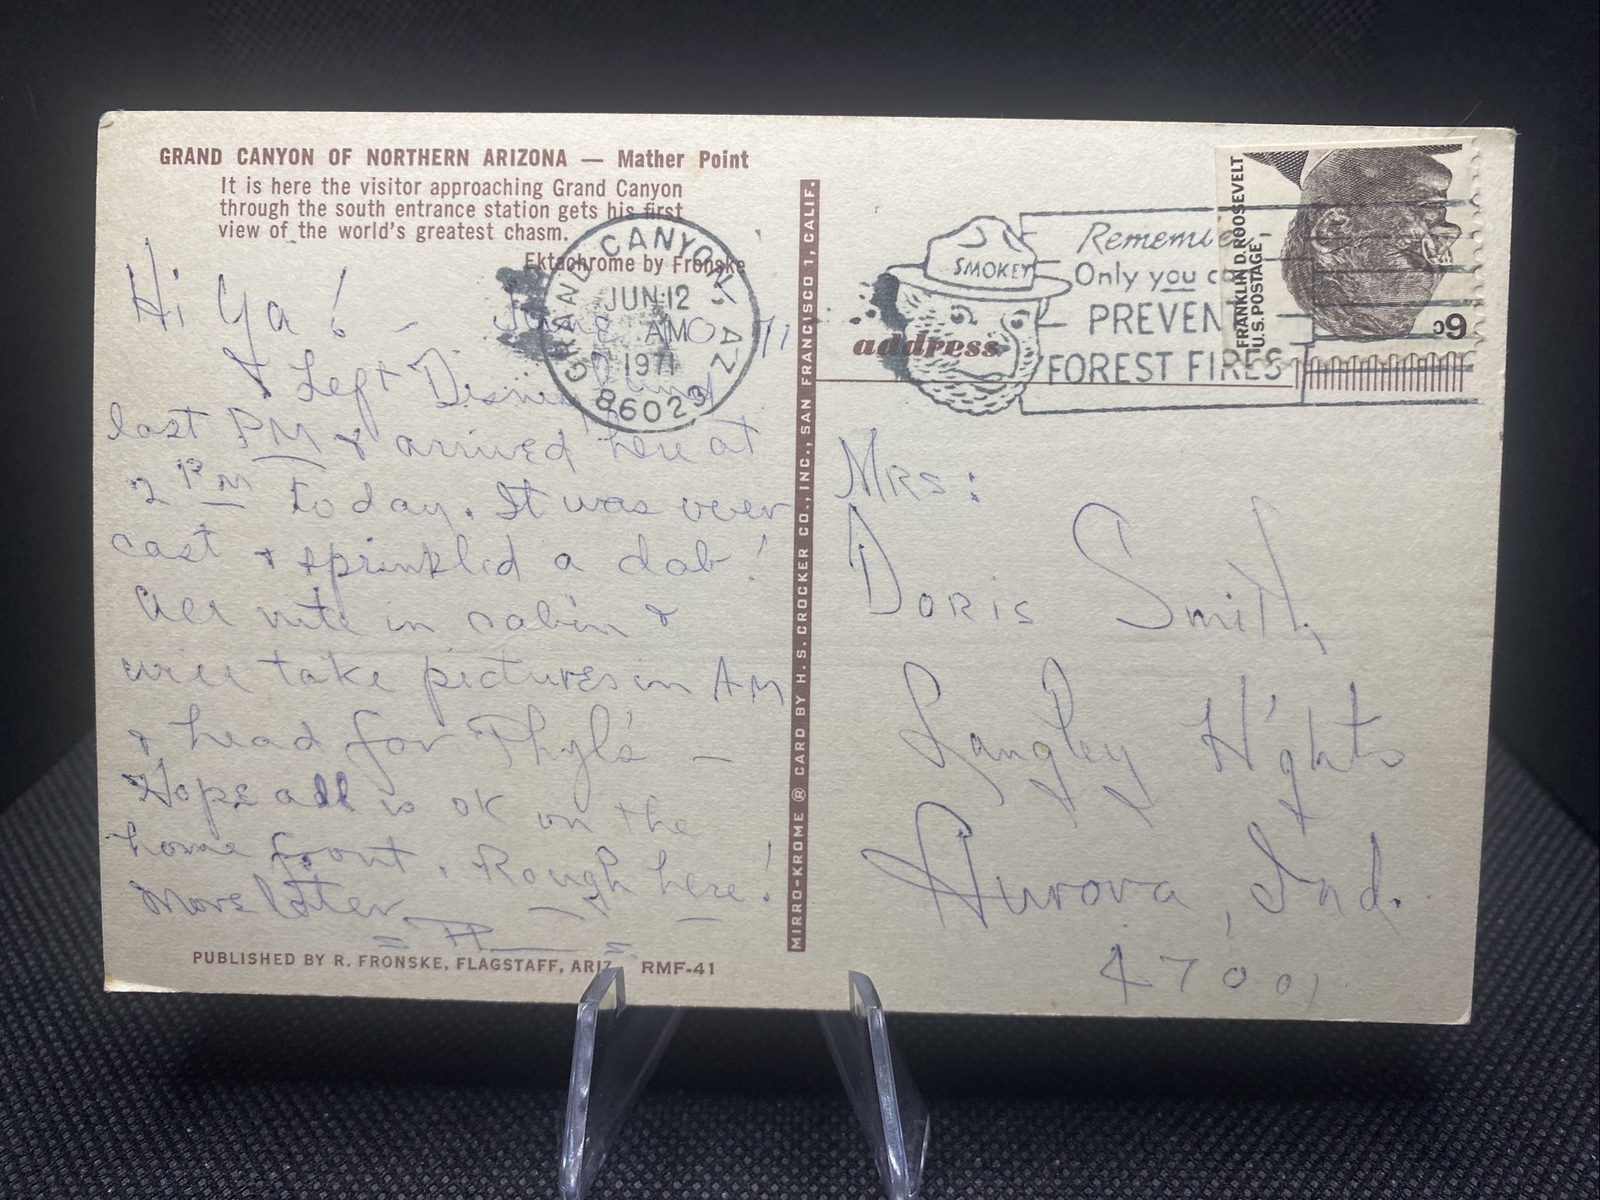 GRAND CANYON OF NORTHERN ARIZONA — Mather Point
It is here the visitor approaching Grand Canyon
through the south entrance station gets his first
view of the world's greatest chasm.
Ektachrome by Fronske
GRAND CANYON, AZ
JUN 12
AM
1971
86023
Hi Ya! -
& Left Disneyland
last PM & arrived here at
2 PM today. It was over
cast & sprinkled a dab!
All nite in cabin &
will take pictures in AM
& head for Phyl's —
Hope all is ok on the
home front. Rough here!
More later
PUBLISHED BY R. FRONSKE, FLAGSTAFF, ARIZ. RMF-41
MIRRO-KROME ® CARD BY H. S. CROCKER CO., INC., SAN FRANCISCO 1, CALIF.
SMOKEY
Only you
PREVENT
FOREST FIRES
address
FRANKLIN D. ROOSEVELT
U.S. POSTAGE
6c
Mrs:
Doris Smith
Langley H'ghts
Aurora, Ind.
47001